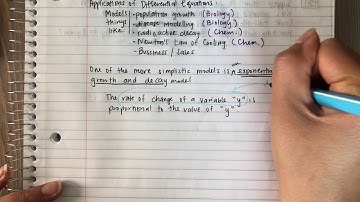 Applications of Differential Equations:
Models - population growth (Biology)
things - disease modeling (Biology)
like: - radioactive decay (Chem.)
- Newton's Law of Cooling (Chem.)
- Business / Sales
One of the more simplistic models is exponential
growth and decay model
The rate of change of a variable "y" is
proportional to the value of "y"